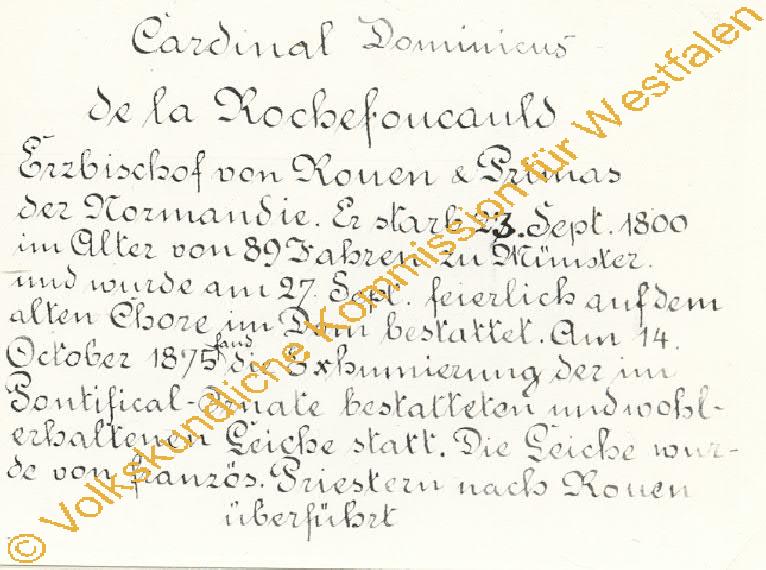 Cardinal Dominicus
de la Rochefoucauld
Erzbischof von Rouen & Primas
der Normandie. Er starb 23. Sept. 1800
im Alter von 89 Jahren zu Münster.
und wurde am 27. Sept. feierlich auf dem
alten Chore im Dom bestattet. Am 14.
October 1875 fand die Exhumierung der im
Pontifical-Ornate bestatteten und wohl-
erhaltenen Leiche statt. Die Leiche wur-
de von französ. Priestern nach Rouen
überführt
© Volkskundliche Kommission für Westfalen